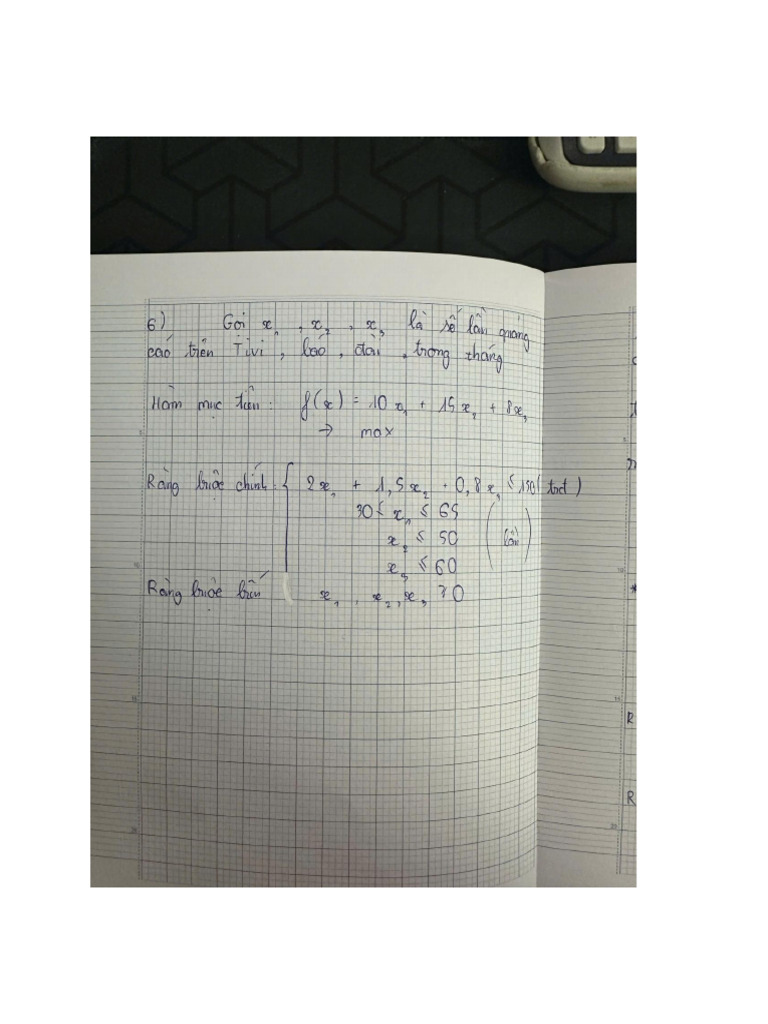 6) Gọi x₁, x₂, x₃ là số lần quảng
cáo trên Tivi, báo, đài, trong tháng
Hàm mục tiêu: f(x) = 10x₁ + 15x₂ + 8x₃
→ max
Ràng buộc chính: { 2x₁ + 1,5x₂ + 0,8x₃ ≤ 150 (trđ)
30 ≤ x₁ ≤ 65
x₂ ≤ 50 (lần)
x₃ ≤ 60
Ràng buộc biến x₁, x₂, x₃ ≥ 0
R
R